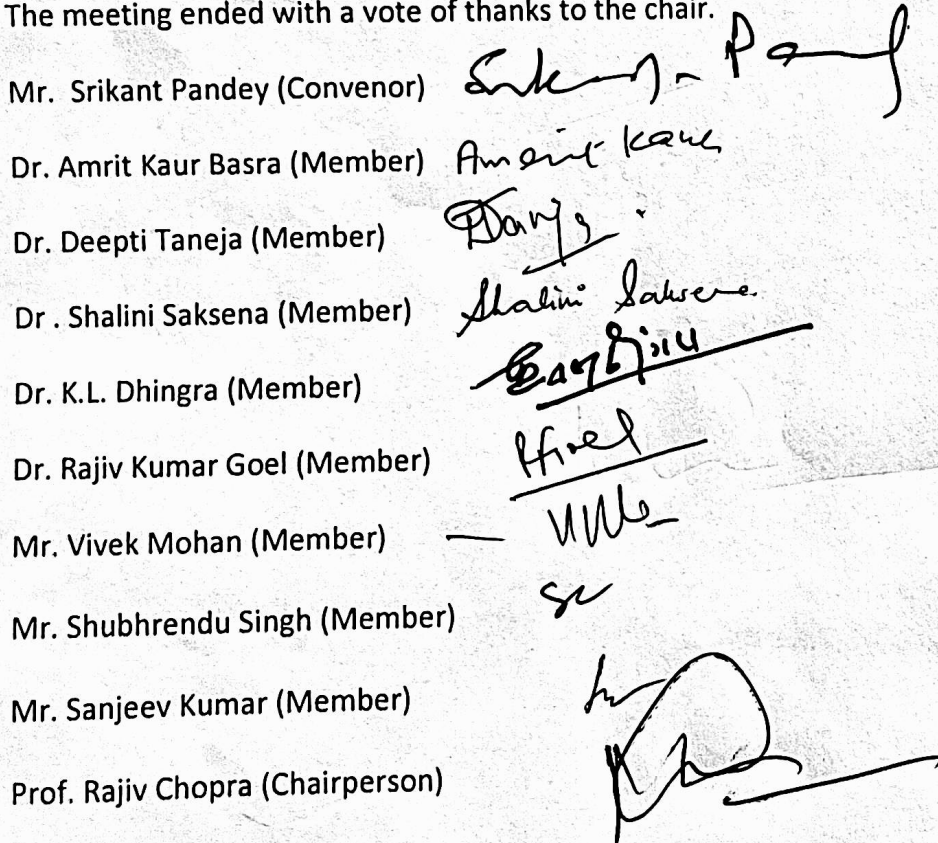 The meeting ended with a vote of thanks to the chair.
Mr. Srikant Pandey (Convenor)
Dr. Amrit Kaur Basra (Member) Amrit Kaur
Dr. Deepti Taneja (Member)
Dr . Shalini Saksena (Member) Shalini Saksena
Dr. K.L. Dhingra (Member)
Dr. Rajiv Kumar Goel (Member)
Mr. Vivek Mohan (Member)
Mr. Shubhrendu Singh (Member)
Mr. Sanjeev Kumar (Member)
Prof. Rajiv Chopra (Chairperson)